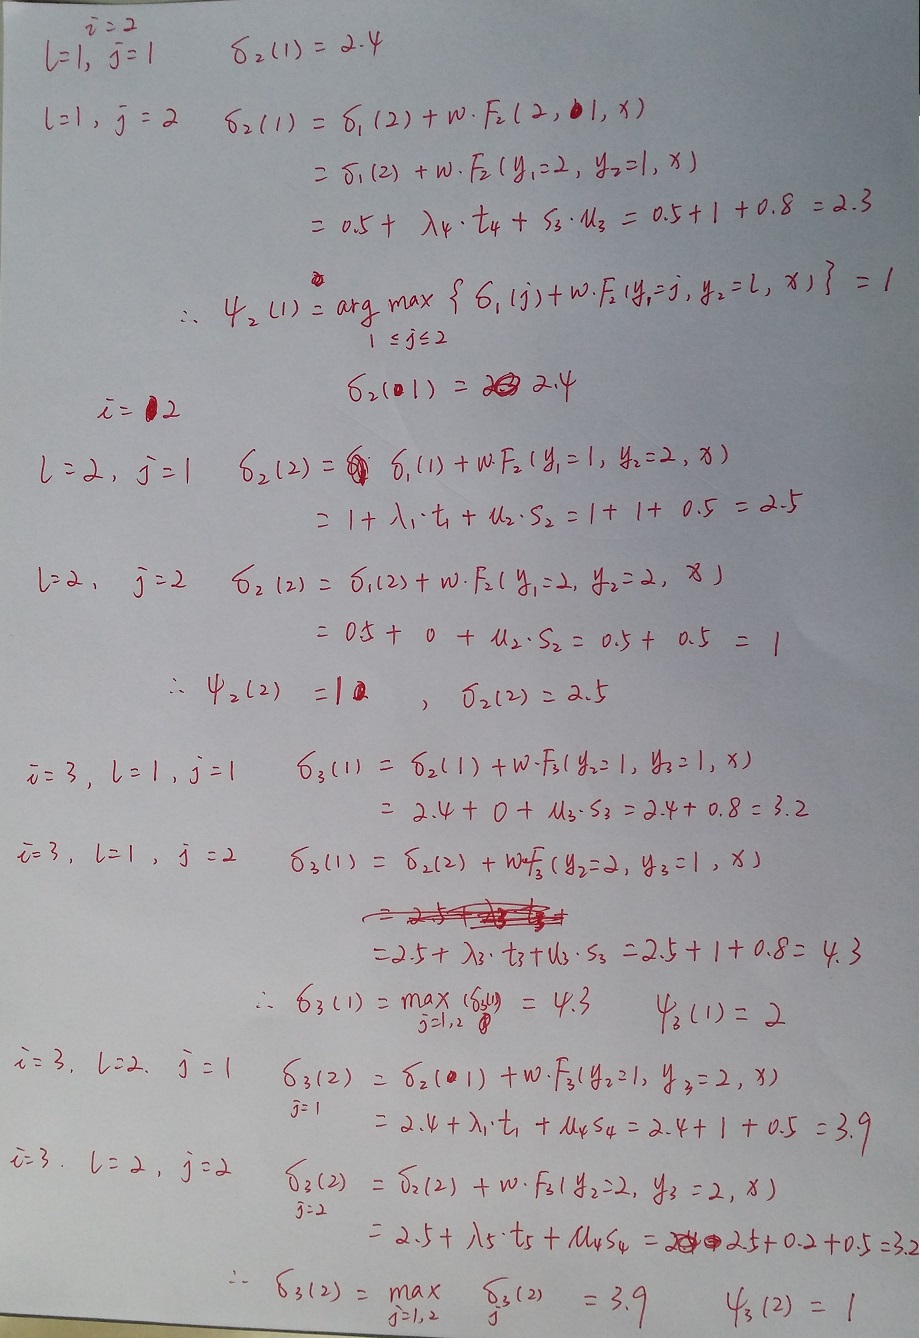 i=2
l=1, j=1 δ₂(1) = 2.4
l=1, j=2 δ₂(1) = δ₁(2) + w·F₂(2, 1, x)
= δ₁(2) + w·F₂(y₁=2, y₂=1, x)
= 0.5 + λ₄·t₄ + S₃·μ₃ = 0.5+1+0.8 = 2.3
∴ ψ₂(1) = arg max { δ₁(j) + w·F₂(y₁=j, y₂=l, x) } = 1
1≤j≤2
δ₂(1) = 2.4
i=2
l=2, j=1 δ₂(2) = δ₁(1) + w·F₂(y₁=1, y₂=2, x)
= 1 + λ₁·t₁ + μ₂·S₂ = 1+1+0.5 = 2.5
l=2, j=2 δ₂(2) = δ₁(2) + w·F₂(y₁=2, y₂=2, x)
= 0.5 + 0 + μ₂·S₂ = 0.5+0.5 = 1
∴ ψ₂(2) = 1 , δ₂(2) = 2.5
i=3, l=1, j=1 δ₃(1) = δ₂(1) + w·F₃(y₂=1, y₃=1, x)
= 2.4 + 0 + μ₃·S₃ = 2.4+0.8 = 3.2
i=3, l=1, j=2 δ₃(1) = δ₂(2) + w·F₃(y₂=2, y₃=1, x)
= 2.5 + λ₃·t₃ + μ₃·S₃ = 2.5+1+0.8 = 4.3
∴ δ₃(1) = max (δ₃(1)) = 4.3 ψ₃(1) = 2
j=1,2
i=3, l=2, j=1 δ₃(2) = δ₂(1) + w·F₃(y₂=1, y₃=2, x)
j=1
= 2.4 + λ₁·t₁ + μ₄S₄ = 2.4+1+0.5 = 3.9
i=3. l=2, j=2 δ₃(2) = δ₂(2) + w·F₃(y₂=2, y₃=2, x)
j=2
= 2.5 + λ₅·t₅ + μ₄S₄ = 2.5+0.2+0.5 = 3.2
∴ δ₃(2) = max δ₃(2) = 3.9 ψ₃(2) = 1
j=1,2 j